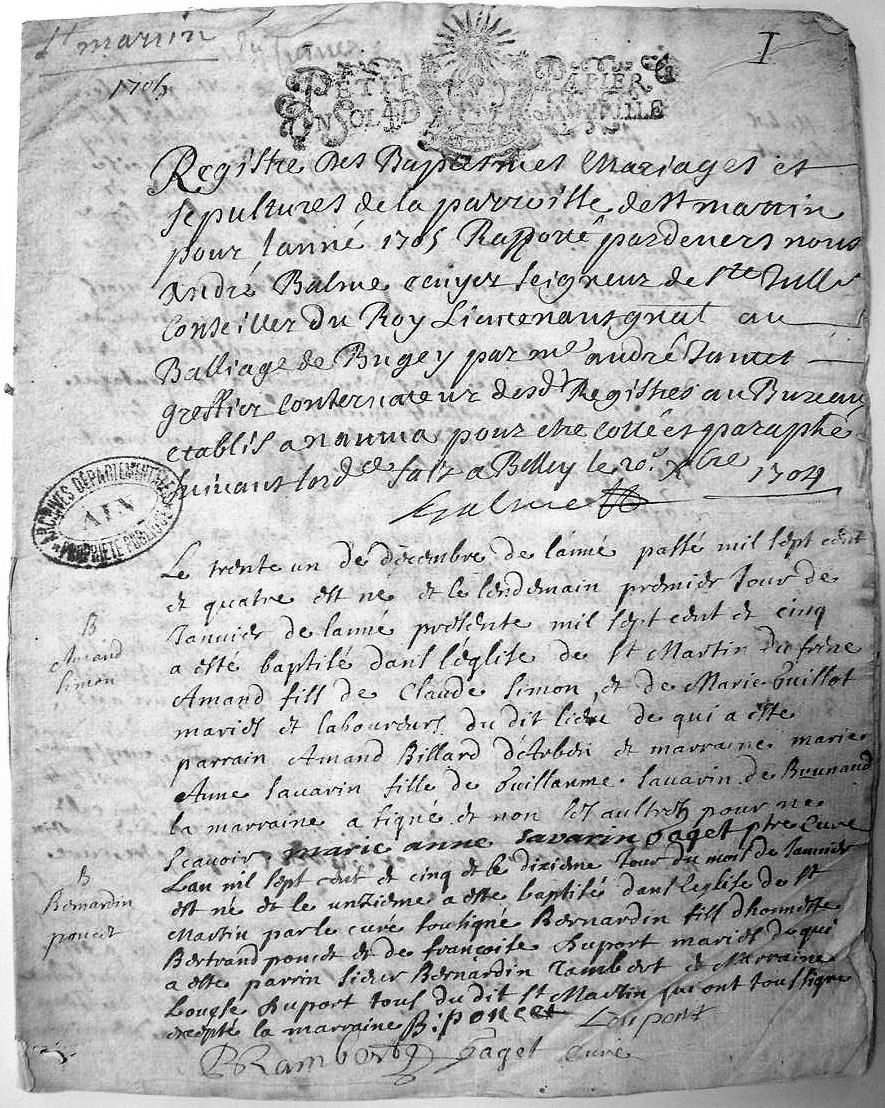 St martin
1705
I
PETIT PAPIER
UN SOL 4 D
ARCHIVES DÉPARTEMENTALES
AIN
PROPRIÉTÉ PUBLIQUE
Registre des Baptesmes Mariages et
sepultures de la parroisse de st martin
pour lanné 1705 Raporté pardevers nous
André Balme ecuyer seigneur de ste Julle
Conseiller du Roy Lieutenant gnal au
Balliage de Bugey par me andré
greffier conservateur desd Registres au Bureau
etablis a nantua pour etre cotté et paraphé
suivant lord ce fait a Belley le 20e xbre 1704
Balme
Le trente un de décembre de lanné passé mil sept cent
et quatre est né et le lendemain premier Jour de
Janvier de lanné présente mil sept cent et cinq
a esté baptisé dans léglise de st Martin du frene
Amand fils de Claude Simon, et de Marie Guillot
mariés et laboureurs du dit lieu de qui a esté
parrain Amand Billard d'Arbon et marraine marie
Anne Savarin fille de Guillaume Savarin de Brunaud
la marraine a signé et non les aultres pour ne
scavoir marie anne savarin paget ptre Curé
B
Amand
Simon
Lan mil sept cent et cinq et le dixieme Jour du mois de Janvier
est né et le unzieme a esté baptisé dans leglise de st
Martin par le curé soussigné Bernardin fils dhonneste
Bertrand poncet et de francoise Duport mariés de qui
a esté parrin sieur Bernardin Rambert et Marraine
Louyse Duport tous du dit st Martin qui ont tous signé
excepté la marraine B. poncet Duport
B Rambert paget curé
B
Bernardin
poncet